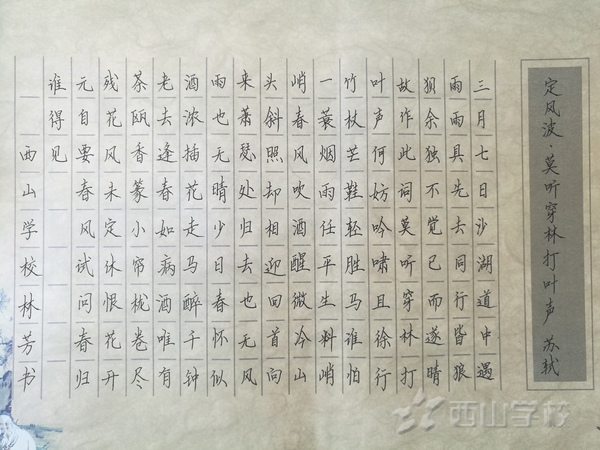 定风波·莫听穿林打叶声 苏轼
三月七日沙湖道中遇
雨雨具先去同行皆狼
狈余独不觉已而遂晴
故作此词莫听穿林打
叶声何妨吟啸且徐行
竹杖芒鞋轻胜马谁怕
一蓑烟雨任平生料峭
峭春风吹酒醒微冷山
头斜照却相迎回首向
来萧瑟处归去也无风
雨也无晴少日春怀似
酒浓插花走马醉千钟
老去逢春如病酒唯有
茶瓯香篆小帘栊卷尽
残花风未定休恨花开
元自要春风试问春归
谁得见
西山学校林芳书
西山学校